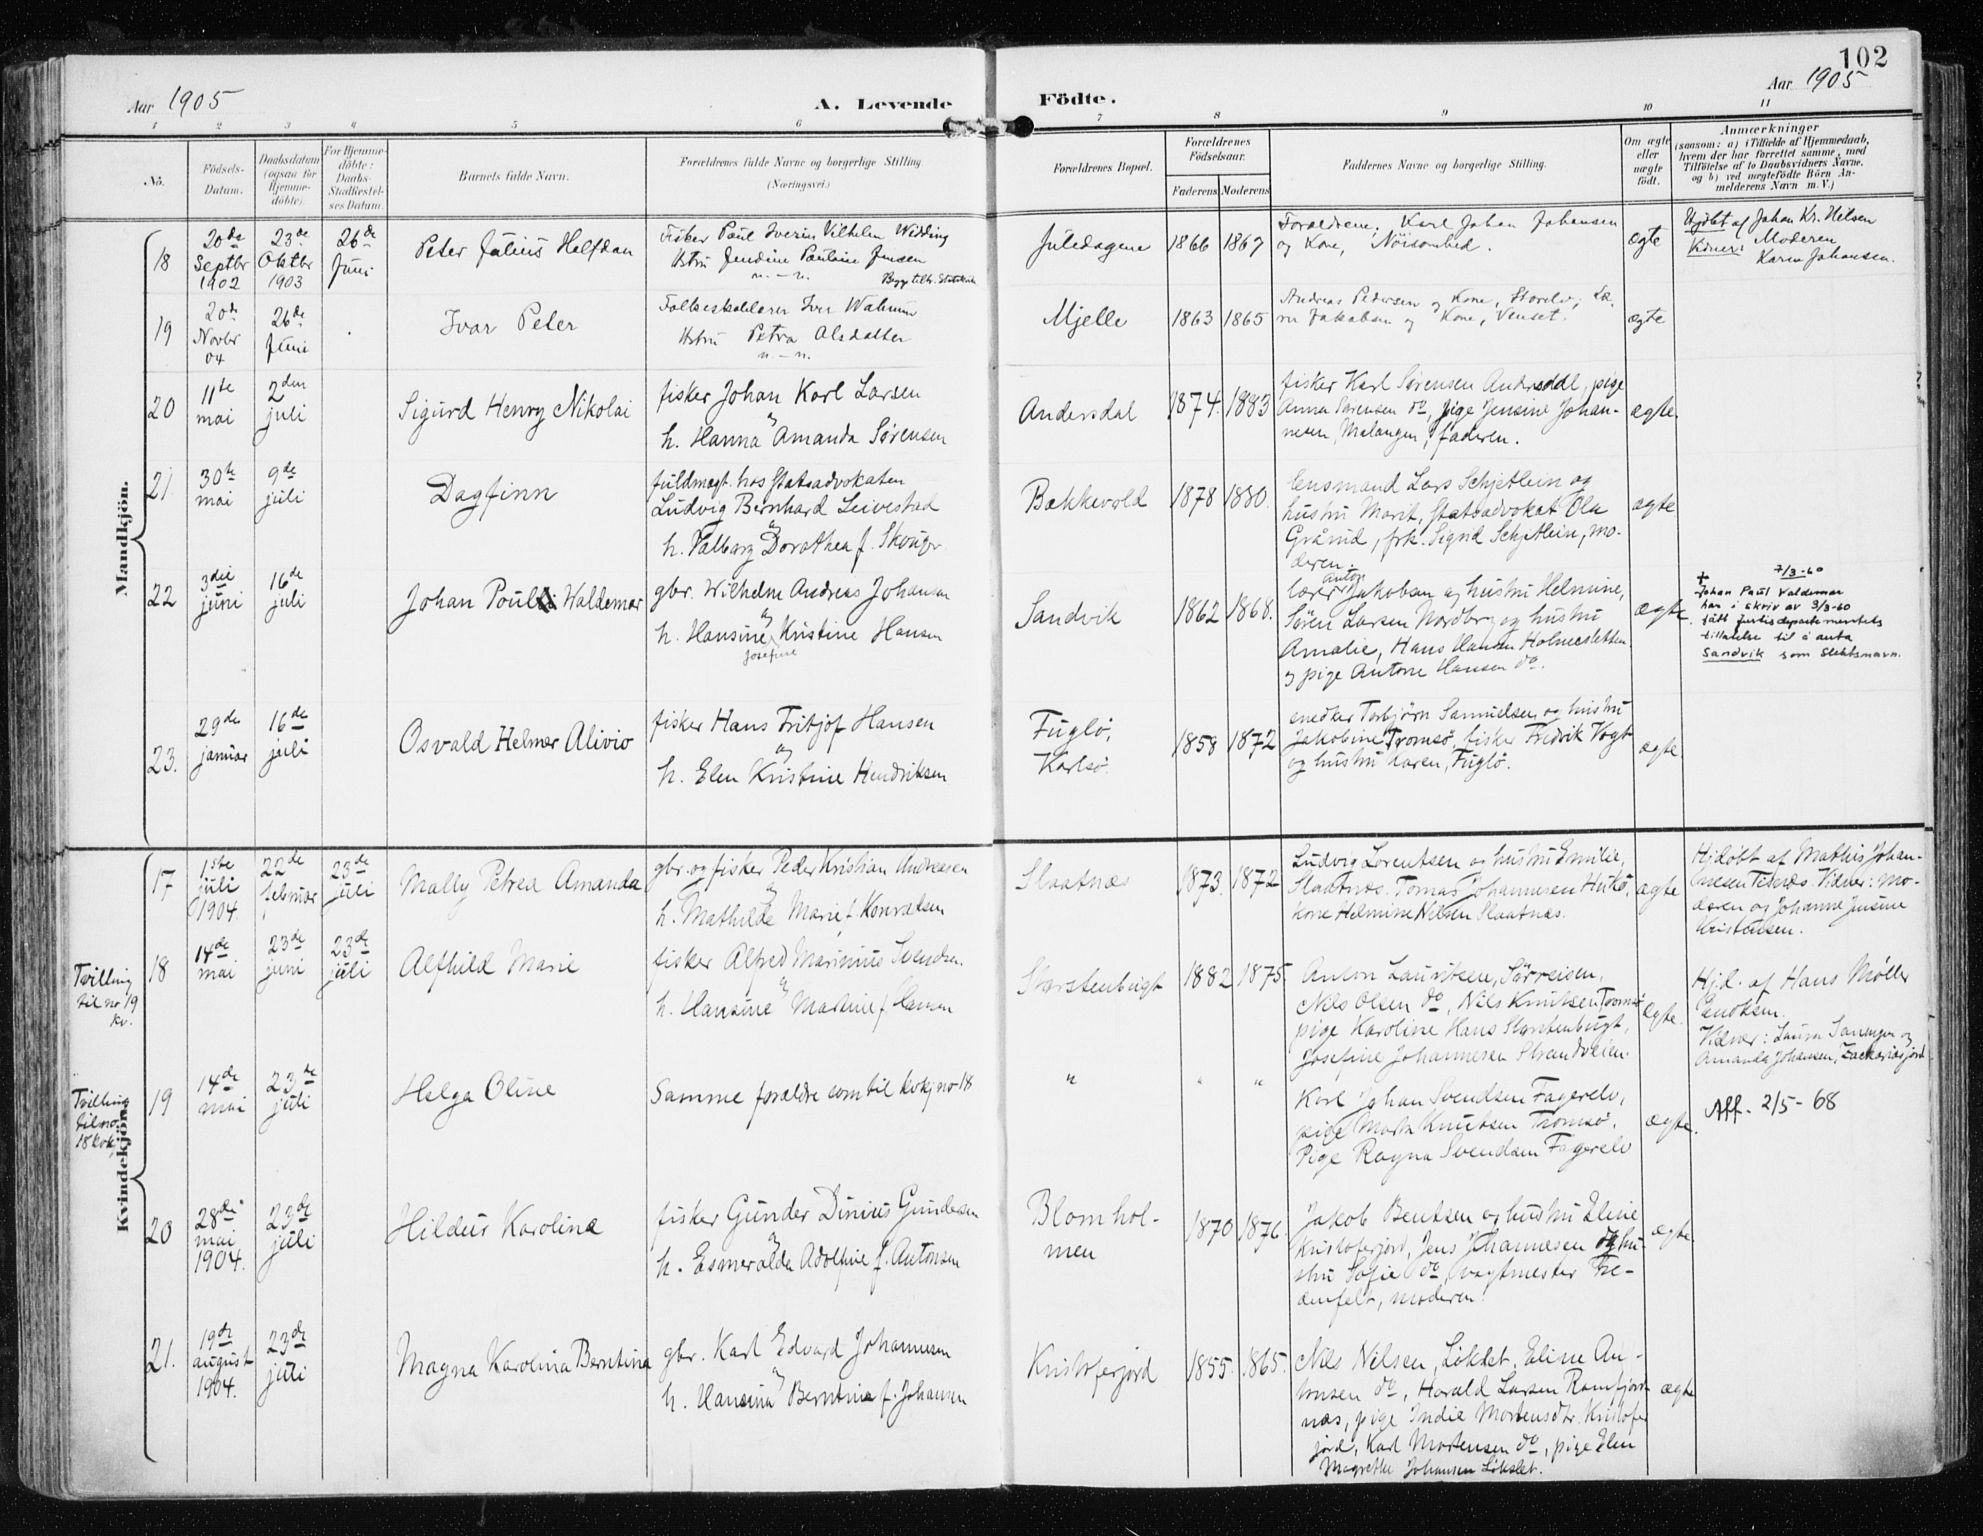 102
Aar 1905
A. Levende Födte.
Aar 1905
1 2 3 4 5 6 7 8 9 10 11
No.
Födsels-
Datum.
Daabsdatum
(ogsaa for
Hjemme-
döbte).
For Hjemme-
döbte:
Daabs-
Stadfæstel-
ses Datum.
Barnets fulde Navn.
Forældrenes fulde Navne og borgerlige Stilling
(Næringsvei.)
Forældrenes Bopæl.
Forældrenes
Födselsaar.
Faderens Moderens
Faddernes Navne og borgerlige Stilling.
Om ægte
eller
uægte
födt.
Anmærkninger
(saasom: a) i Tilfælde af Hjemmedaab,
hvem der har forrettet samme, med
Tilföielse af to Daabsvidners Navne.
og b) ved uægtefödte Börn An-
melderens Navn m. V.)
Mandkjön.
18
20de
Septbr
1902
23de
Oktbr
1903
26de
Juni
Peter Julius Halfdan
Fisker Paul Iverin Vilhelm Widding
Hstru Jendine Pauline Jensen
n. - n.
Juledagene
1866 1867
Forældrene. Karl Johan Johansen
og Kone, Nöisomhed.
ægte
Hjdöbt af Johan Kr. Nilsen
Vidner: Moderen
Karen Johansen.
19
20de
Novbr
04
26de
Juni
Ivar Peter
Hstru Petra Olsdatter
n. - n.
Mjelle
1863 1865
Andreas Pedersen og Kone, Storelv, La-
rs Jakobsen og Kone, Venset.
ægte
20
11te
mai
2den
juli
Sigurd Henry Nikolai
fisker Johan Karl Larsen
og
h. Hanna Amanda Sørensen
Andersdal
1874. 1883
fisker Karl Sørensen Andersdal, pige
Anna Sørensen do, pige Jensine Johan-
nesen, Malangen, faderen.
ægte.
21.
30te
mai
9de
juli
Dagfinn
fuldmægt. hos Statsadvokaten
Ludvig Bernhard Leivestad
og
h. Valborg Dorothea f.
Bakkevold
1878 1880.
Lensmand Lars Schjetlein og
hustru Marit, Statsadvokat Ola
Grånud, frk. Signd Schjetlein, mo-
deren.
ægte
22
3die
juni
16de
juli
Johan Poul Waldemar
gbr. Wilhelm Andreas Johansen
og
h. Hansine Kristine Hansen
Josefine
Sandvik
1862 1868.
Anton
lærer Jakobsen og hustru Helmine,
Sören Larsen Nordberg og hustru
Amalie, Hans Hansen Holmesletten
og pige Antone Hansen do.
ægte.
+ 7/3-60
Johan Paul Valdemar
har i skriv av 3/3-60
fått justisdepartementets
tillatelse til å anta
Sandvik som slektsnavn.
23.
29de
januar
16de
juli
Osvald Helmer Alivio
fisker Hans Fritjof Hansen
og
h. Elen Kristine Hendriksen
Fuglö,
Karlsö.
1858 1872
snedker Torbjörn Samuelsen og hustru
Jakobine Tromsö, fisker Fredrik Vogt
og hustru Karen, Fuglö.
ægte.
Kvindekjön.
17
1ste
juli
1904.
22de
februar
23de
juli
Mally Petrea Amanda
gbr. og fisker Peder Kristian Andreasen
og
h. Mathilde Marie f. Konradsen
Slaatnæs
1873. 1872
Ludvig Lorentsen og hustru Emilie,
Slaatnæs. Tomas Johannesen Hikö,
kone Helmine Nilsen Slaatnæs.
ægte
Hjdöbt af Mathis Johan-
nesen Vidner: mo-
deren og Johanne Jensine
Kristensen.
Tvilling
til no 19
kv.
18
14de
mai
23de
juni
23de
juli
Alfhild Marie
fisker Alfred Marinius Svendsen.
og
h. Hansine Martine f Hansen
Storstenbugt
1882 1875.
Anton Lauritsen, Sörreisen,
Nils Olsen do, Nils Knutsen Tromsö
pige Karoline Hans Storstenbugt,
Josefine Johannesen Strandveien.
ægte.
Hjd. af Hans Møller
Enoksen.
Vidner: Laura Sörensen og
Amanda Johansen, Zachariasjord
Tvilling
til no.
18 kvkj.
19
14de
mai
23de
juli
Helga Oline
Samme foreldre som til kvkj no 18
" " "
Karl Johan Svendsen Fagerelv,
pige Marta Knutsen Tromsö.
Pige Ragna Svendsen Fagerelv
ægte.
Aff. 2/5-68
20
28de
mai
1904.
23de
juli
Hildur Karoline
fisker Gunder Dinius Gundersen
og
h. Esmeralda Adolfine f. Antonsen
Blomhol-
men
1870 1876.
Jakob Bentsen og hustru Eline
Kristoferjord, Jens Johannesen og hu-
stru Sofie do, vagtmester Fre-
denfelt, moderen.
ægte.
21.
19de
august
1904.
23de
juli
Magna Karolina Berntina
gbr. Karl Edvard Johannesen
og
h. Hansina Berntina f. Johansen
Kristoferjord
1855. 1865.
Nils Nilsen, Löksletÿ, Eline An-
tonsen do, Harald Larsen Ramfjord-
næs, pige Indie Mortensdtr. Kristofer
jord, Karl Mortensen do, pige Elen
Magrethe Johansen Lökslet.
ægte